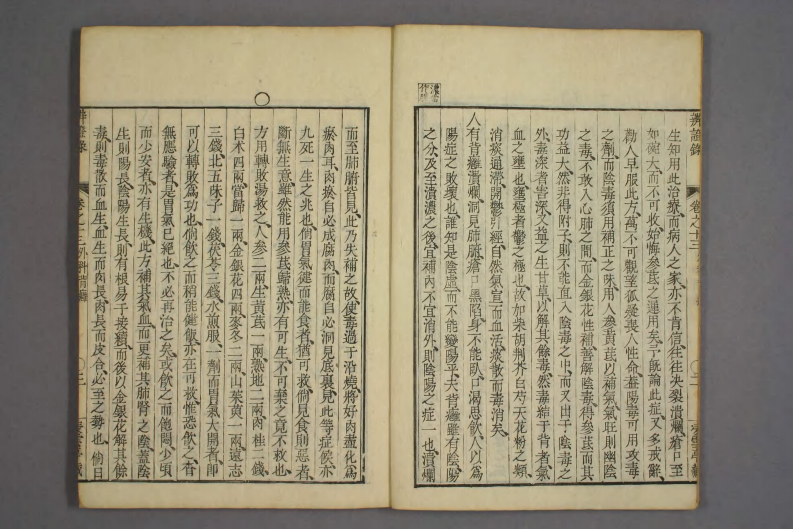 生知用此治療而病人之家亦不肯信往往決裂潰爛瘡口至
如碗大而不可收始悔參芪之遲用矣予旣論此症又多戒辭
勸人早服此方萬不可觀望狐疑喪人性命葢陽毒可用攻毒
之劑而陰毒須用補正之味用人參黃芪以補氣氣旺則幽陰
之毒不敢入心肺之間而金銀花性補善解陰毒得參芪而其
功益大然非得附子則不能直入陰毒之中而又出于陰毒之
外毒深者害深又益之生甘草以解其餘毒然毒結于背者氣
血之壅也壅極者鬱之極也故加柴胡荆芥白芍天花粉之類
消痰通滯開鬱引經自然氣宣而血活痰散而毒消矣
人有背癰潰爛洞見肺腑瘡口黑陷身不能臥口渴思飲人以爲
陽症之敗壞也誰知是陰虛而不能變陽乎夫背癰雖有陰陽
之分及至潰濃之後宜補內不宜消外則陰陽之症一也潰爛
而至肺腑皆見此乃失補之故使毒過于沿燒將好肉盡化爲
瘀肉耳肉瘀自必成腐肉而腐自必洞見底裏見此等症候亦
九死一生之兆也倘胃氣健而能食者猶可救倘見食則惡者
斷無生意雖然能用參芪歸熟亦有可生不可棄之竟不救也
方用轉敗湯救之人參二兩生黃芪一兩熟地二兩肉桂二錢
白朮四兩當歸一兩金銀花四兩麥冬二兩山茱萸一兩遠志
三錢北五味子一錢茯苓三錢水煎服一劑而胃氣大開者卽
可以轉敗爲功也倘飲之而稍能健飯亦在可救惟恐飲之杳
無應驗者是胃氣已絕也不必再治之矣或飲之而飽悶少頃
而少安者亦有生機此方補其氣血而更補其肺腎之陰葢陰
生則陽長陰陽生長則有根易于接續而後以金銀花解其餘
毒則毒散而血生血生而肉長肉長而皮合必至之勢也倘日
辨證錄
卷之十三